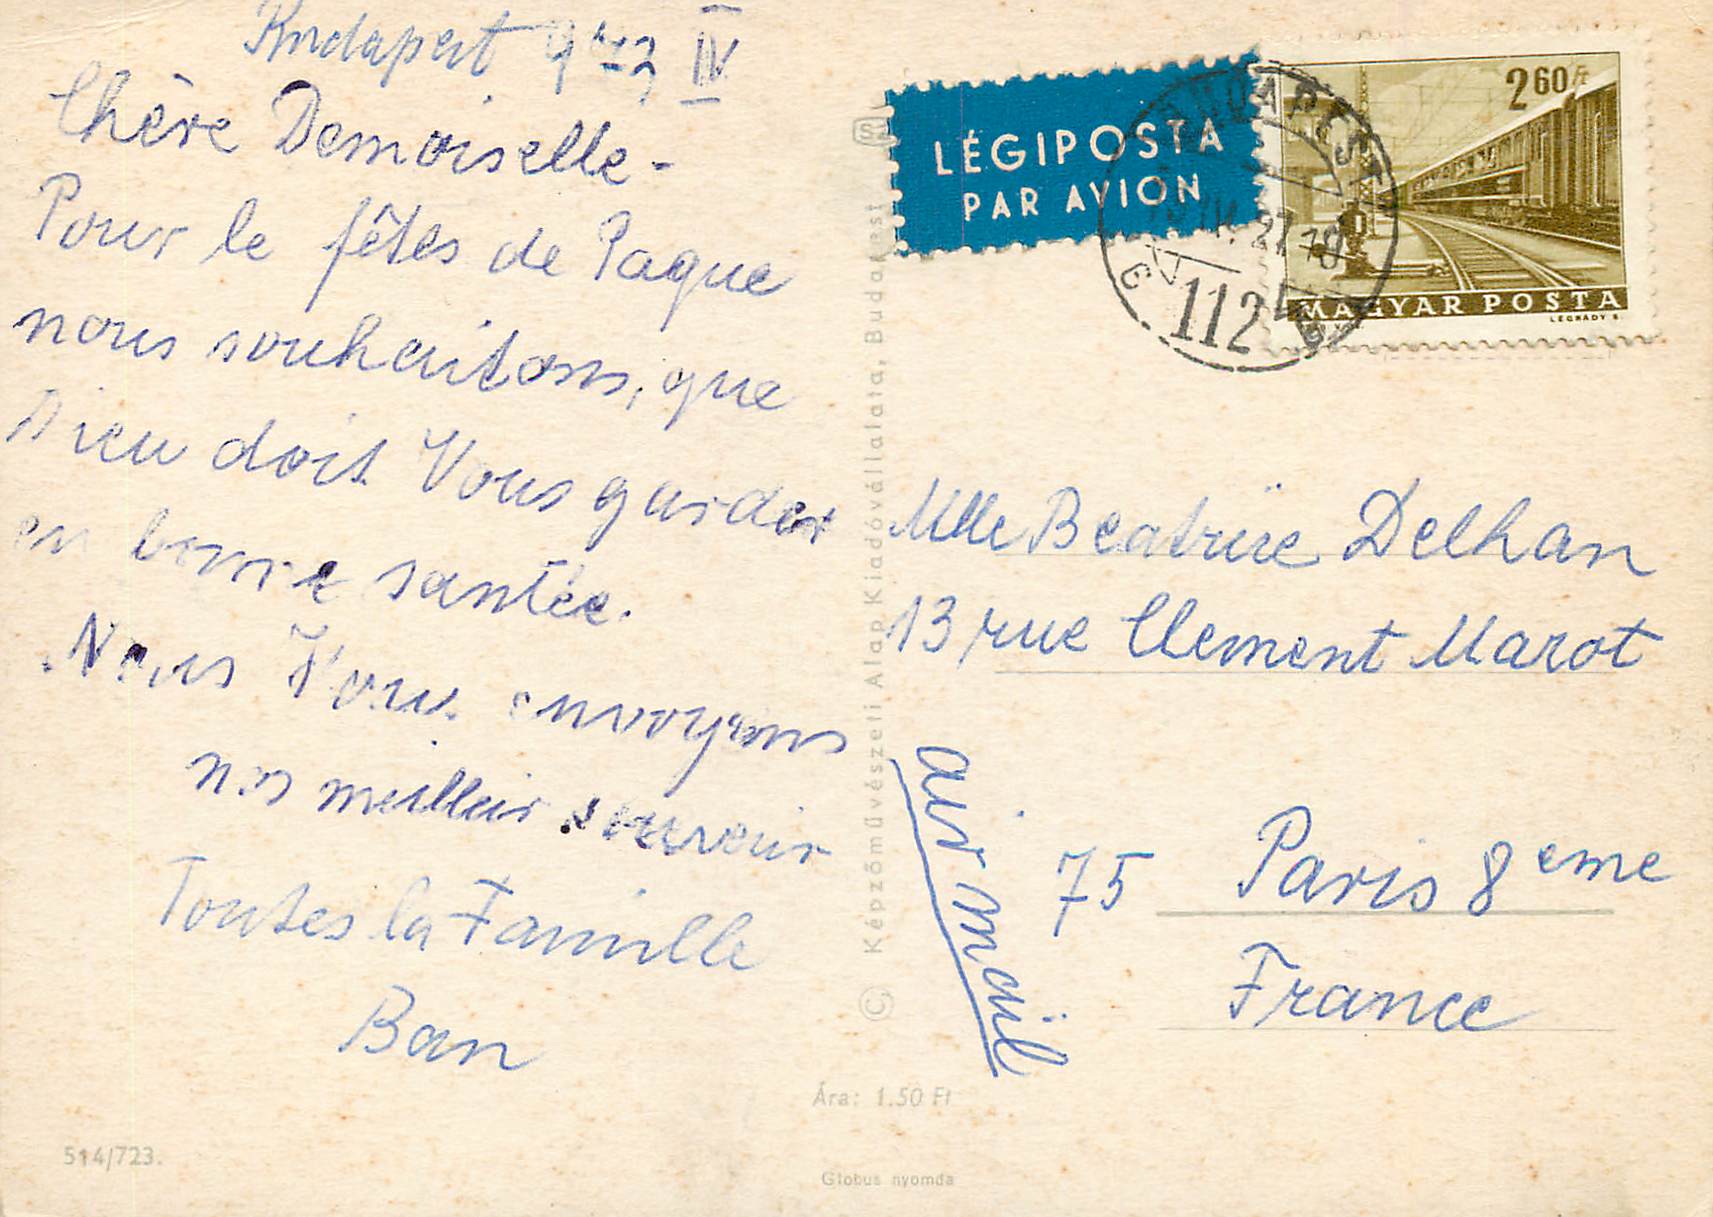 Budapest IV
Chère Demoiselle -
Pour le fêtes de Paque
nous souhaitons, que
Dieu doit Vous garder
en bonne santée.
Nous Vous envoyons
nos meilleir souveir
Toutes la Famille
Ban
514/723.
LÉGIPOSTA
PAR AVION
BUDAPEST
27.18
112
260 Ft
MAGYAR POSTA
LÉGRÁDY S.
© Képzőművészeti Alap Kiadóvállalata, Budapest
Mlle Beatriie Delhan
13 rue Clement Marot
75 Paris 8eme
France
air mail
Ára: 1.50 Ft
Globus nyomda